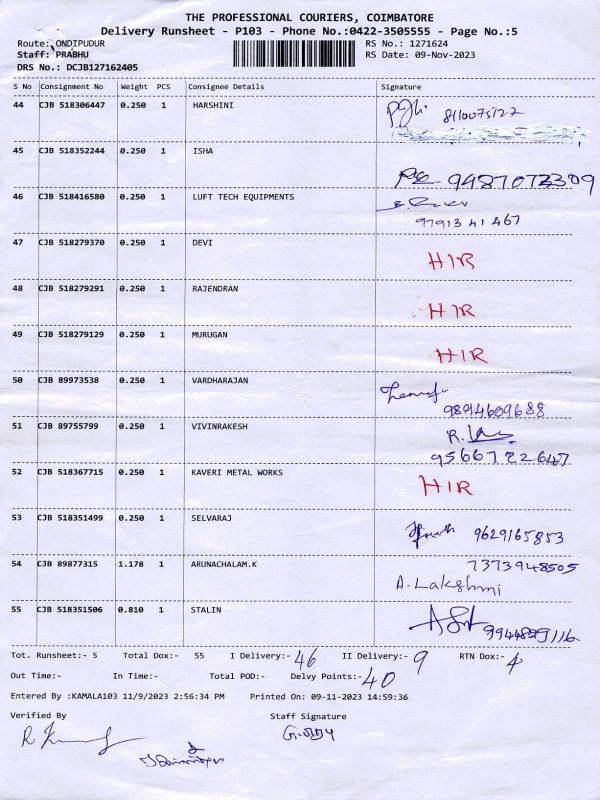 THE PROFESSIONAL COURIERS, COIMBATORE
Delivery Runsheet - P103 - Phone No.:0422-3505555 - Page No.:5
Route: ONDIPUDUR RS No.: 1271624
Staff: PRABHU RS Date: 09-Nov-2023
DRS No.: DCJB127162405
S No Consignment No Weight PCS Consignee Details Signature
44 CJB 518306447 0.250 1 HARSHINI
45 CJB 518352244 0.250 1 ISHA
9487072309
46 CJB 518416580 0.250 1 LUFT TECH EQUIPMENTS
9791341467
47 CJB 518279370 0.250 1 DEVI
HIR
48 CJB 518279291 0.250 1 RAJENDRAN
HIR
49 CJB 518279129 0.250 1 MURUGAN
HIR
50 CJB 89973538 0.250 1 VARDHARAJAN
9894609688
51 CJB 89755799 0.250 1 VIVINRAKESH
9566722647
52 CJB 518367715 0.250 1 KAVERI METAL WORKS
HIR
53 CJB 518351499 0.250 1 SELVARAJ
9629165853
54 CJB 89877315 1.178 1 ARUNACHALAM.K 7373948505
A.Lakshmi
55 CJB 518351506 0.810 1 STALIN
Tot. Runsheet:- 5 Total Dox:- 55 I Delivery:- 46 II Delivery:- 9 RTN Dox:- 4
Out Time:- In Time:- Total POD:- Delvy Points:- 40
Entered By :KAMALA103 11/9/2023 2:56:34 PM Printed On: 09-11-2023 14:59:36
Verified By Staff Signature